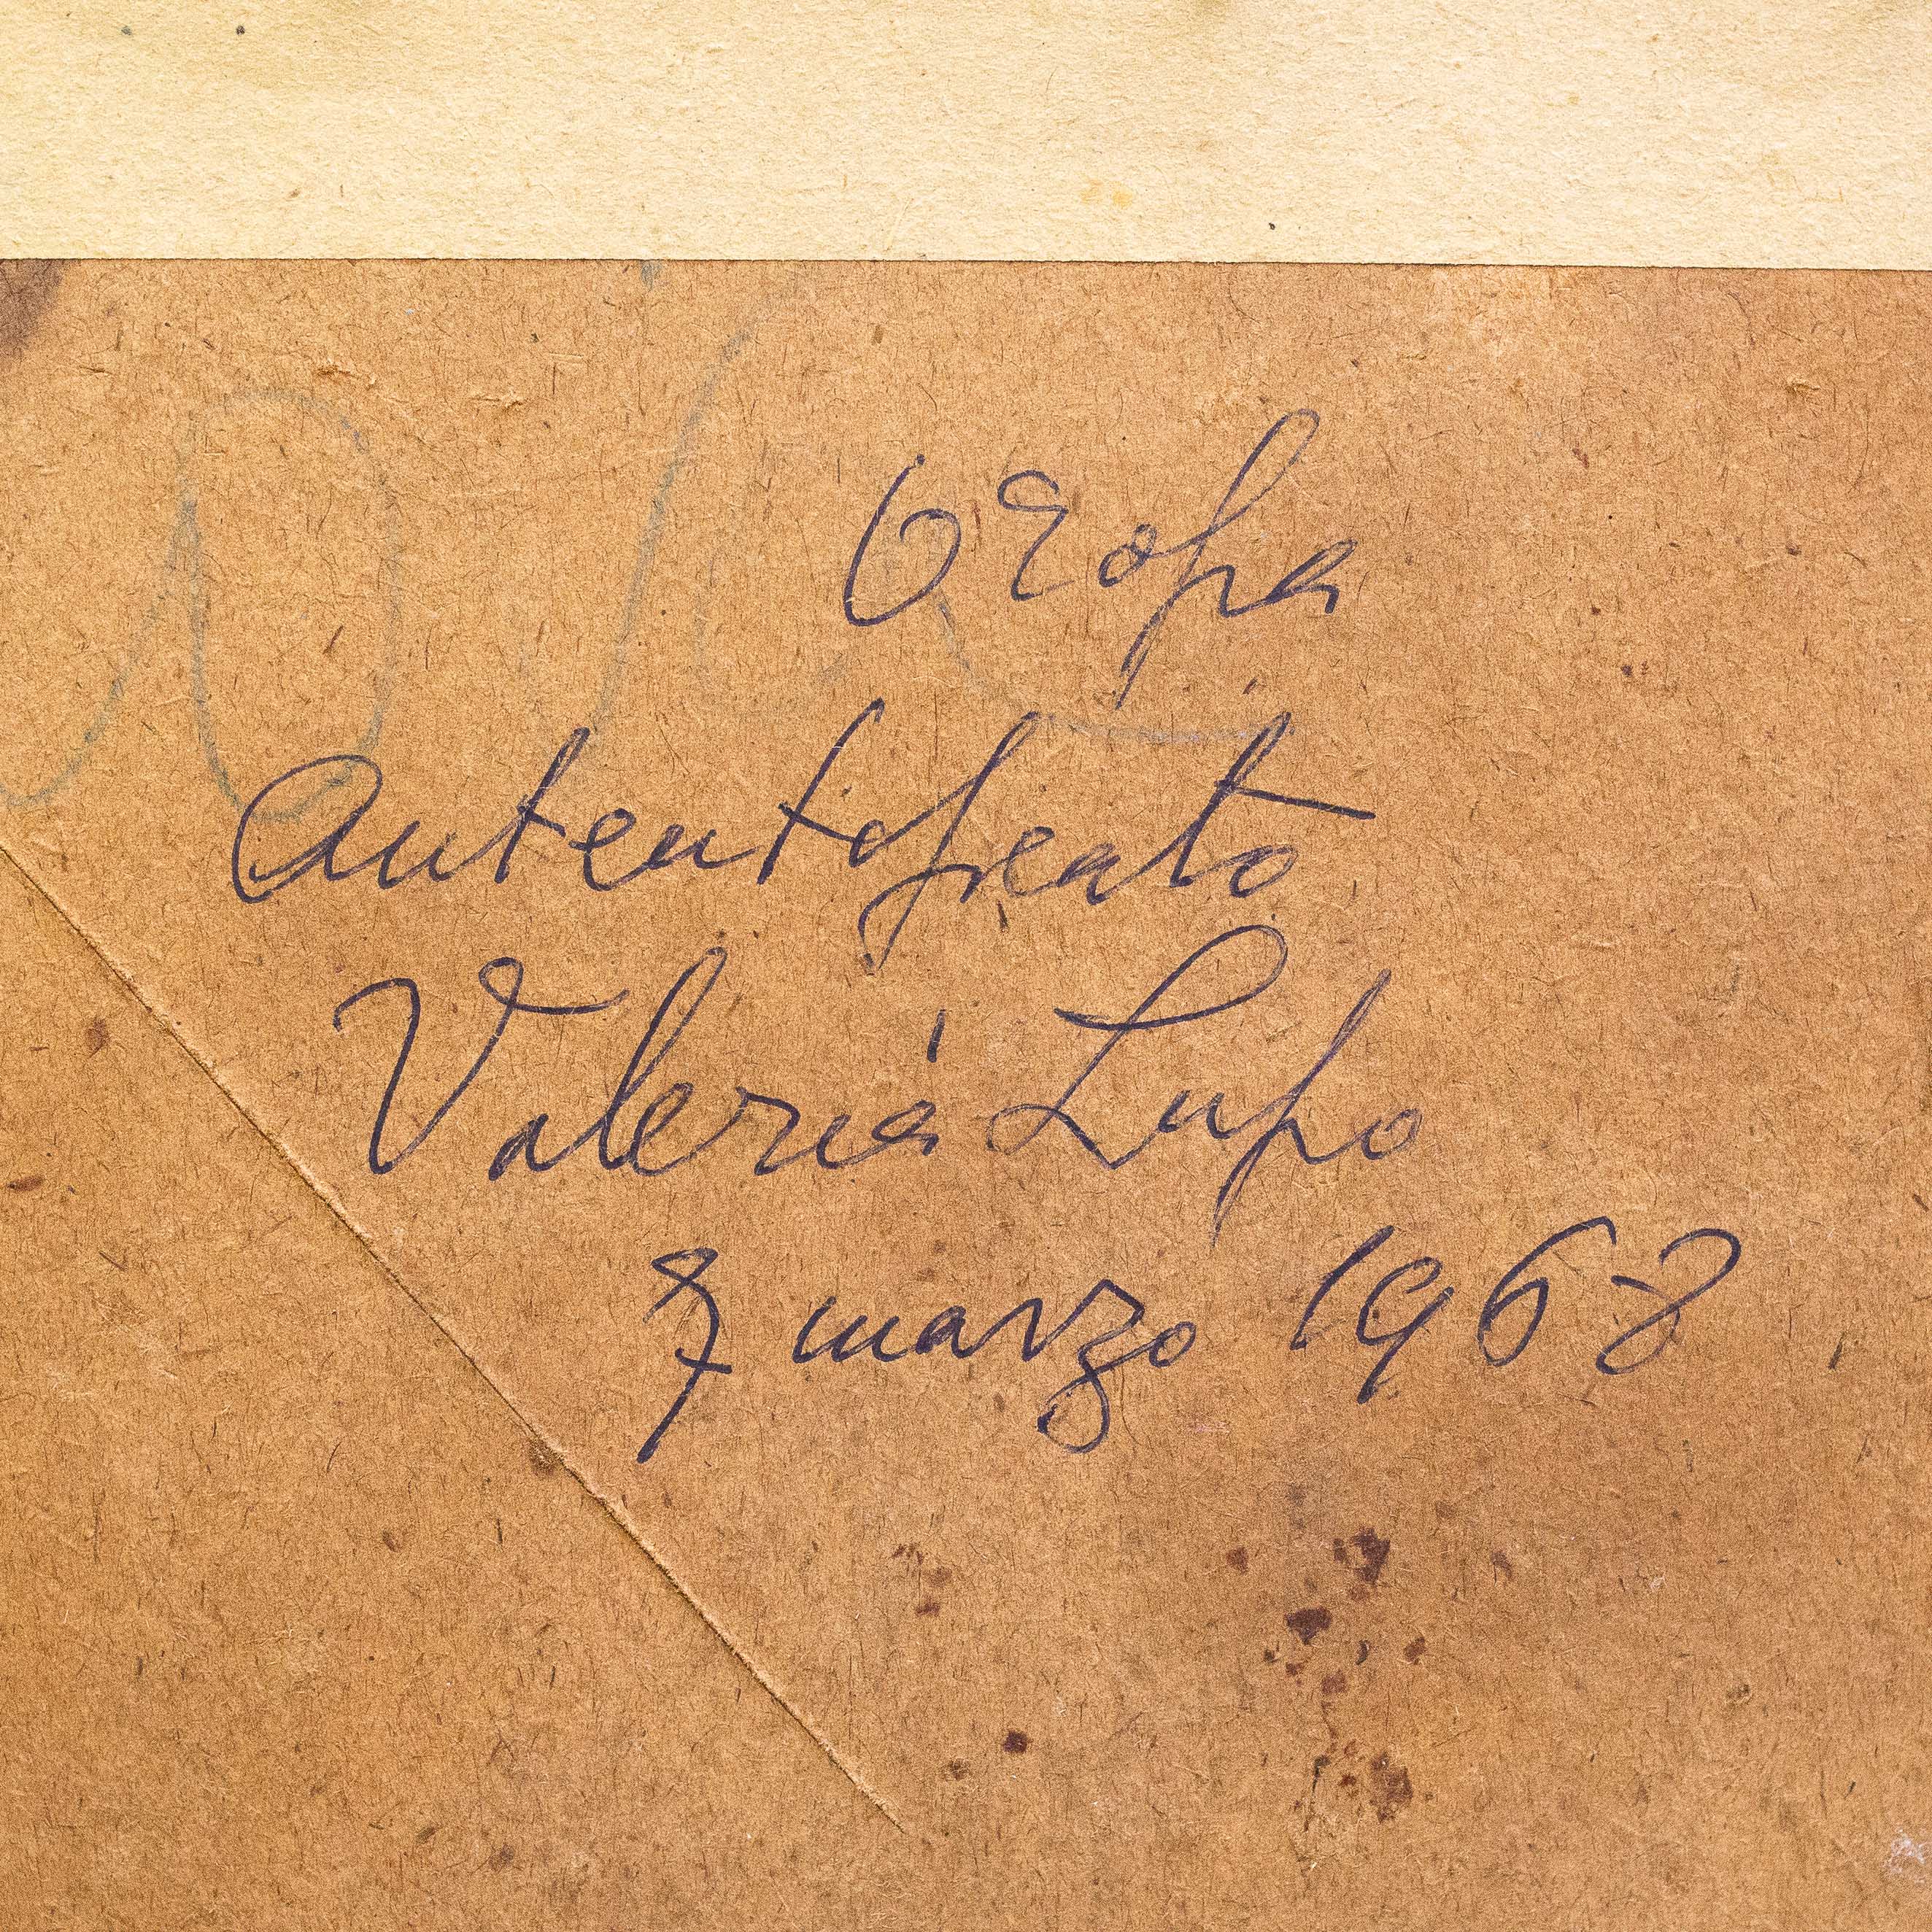 Oropa
autentificato
Valeria Lupo
7 marzo 1968